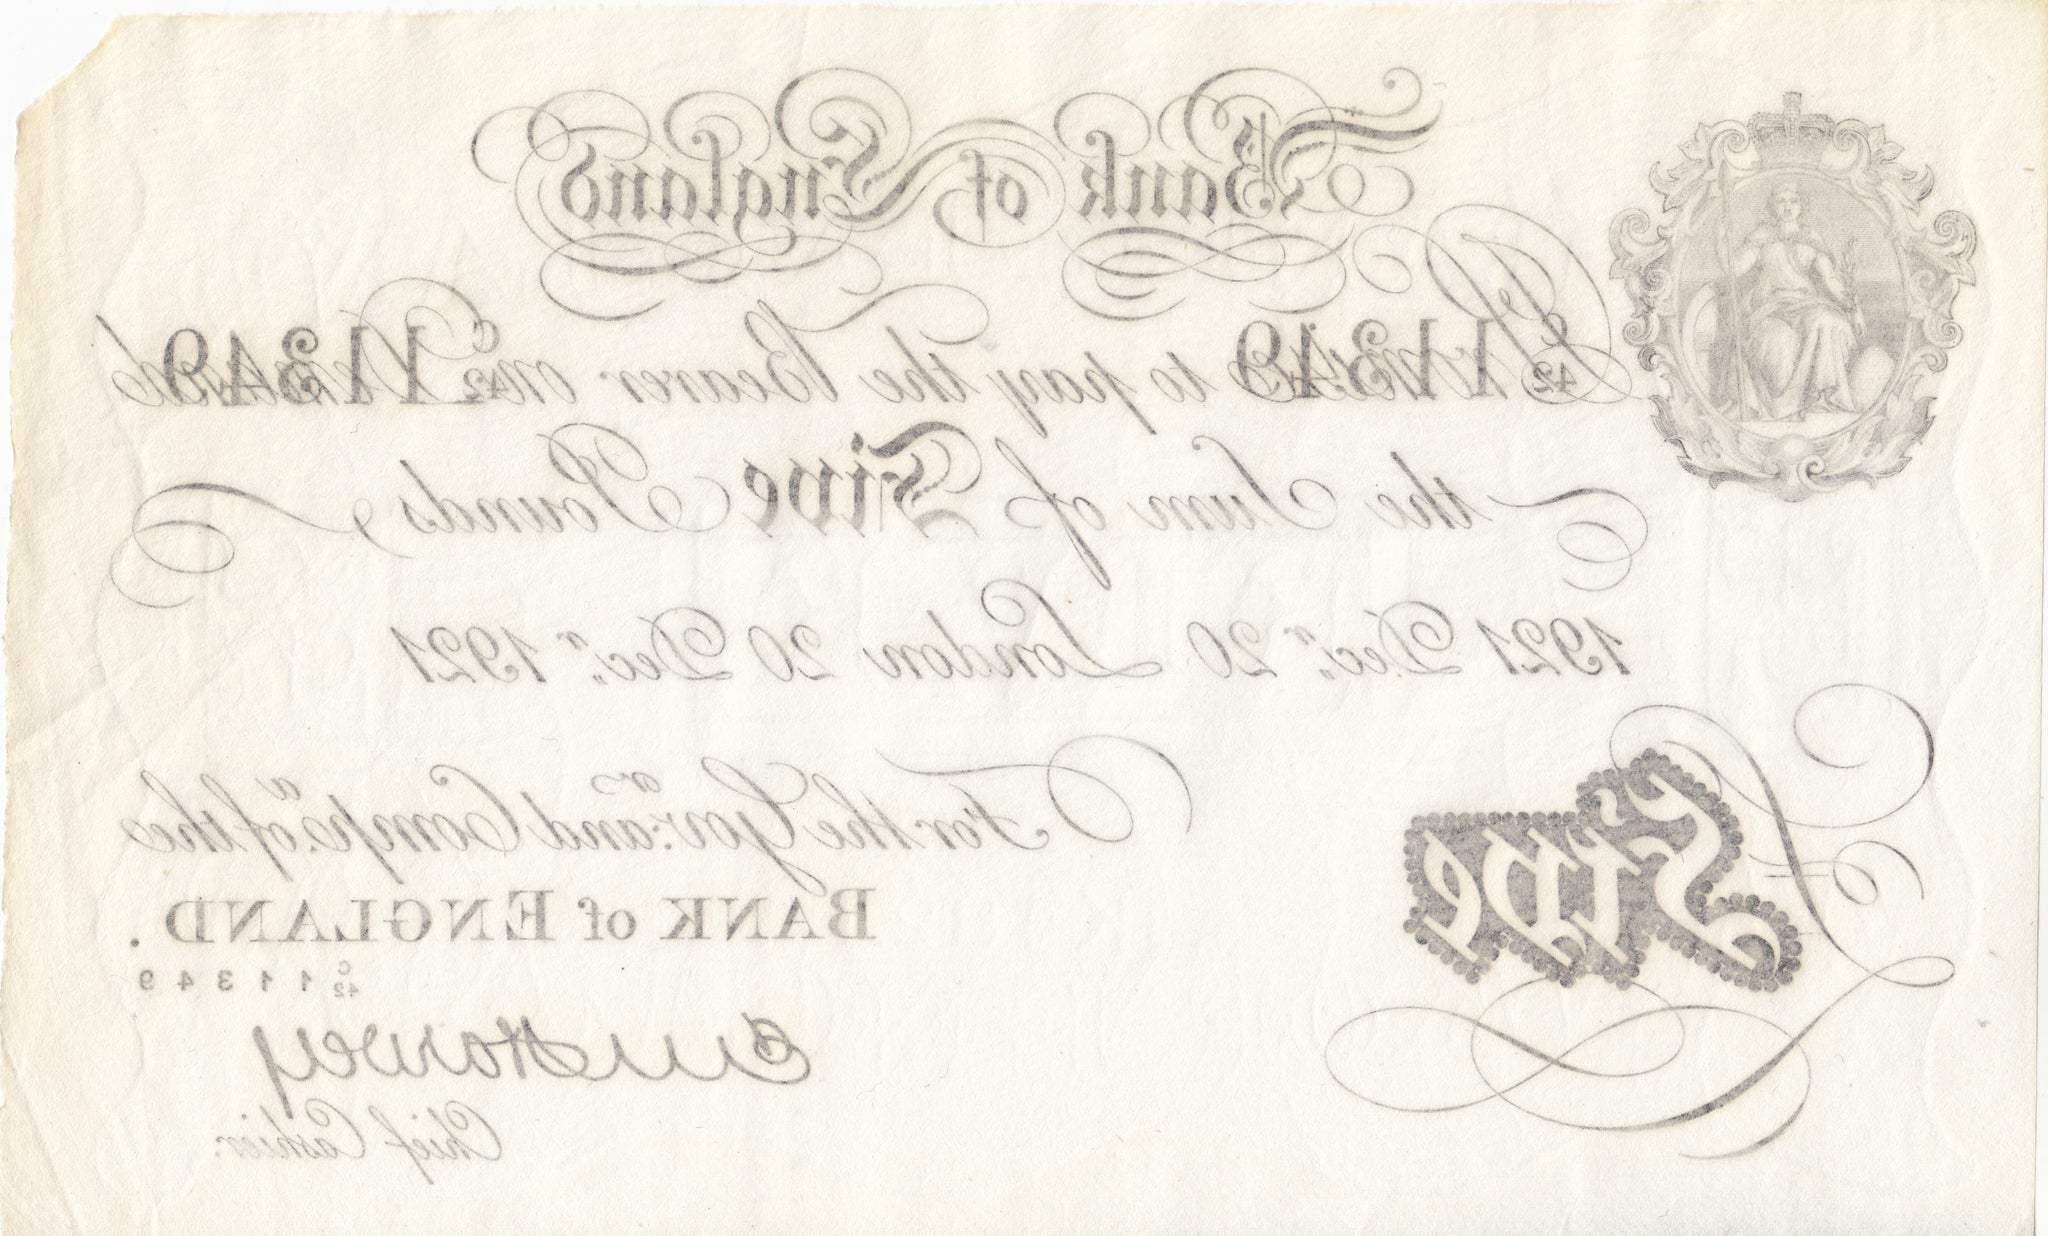 Bank of England
C/42 11349 Promise to pay the Bearer on Demand C/42 11349
the Sum of Five Pounds
1921 Decr. 20 London 20 Decr. 1921
For the Govr. and Compa. of the
BANK of ENGLAND.
C/42 11349
£ Five
E M Harvey
Chief Cashier.